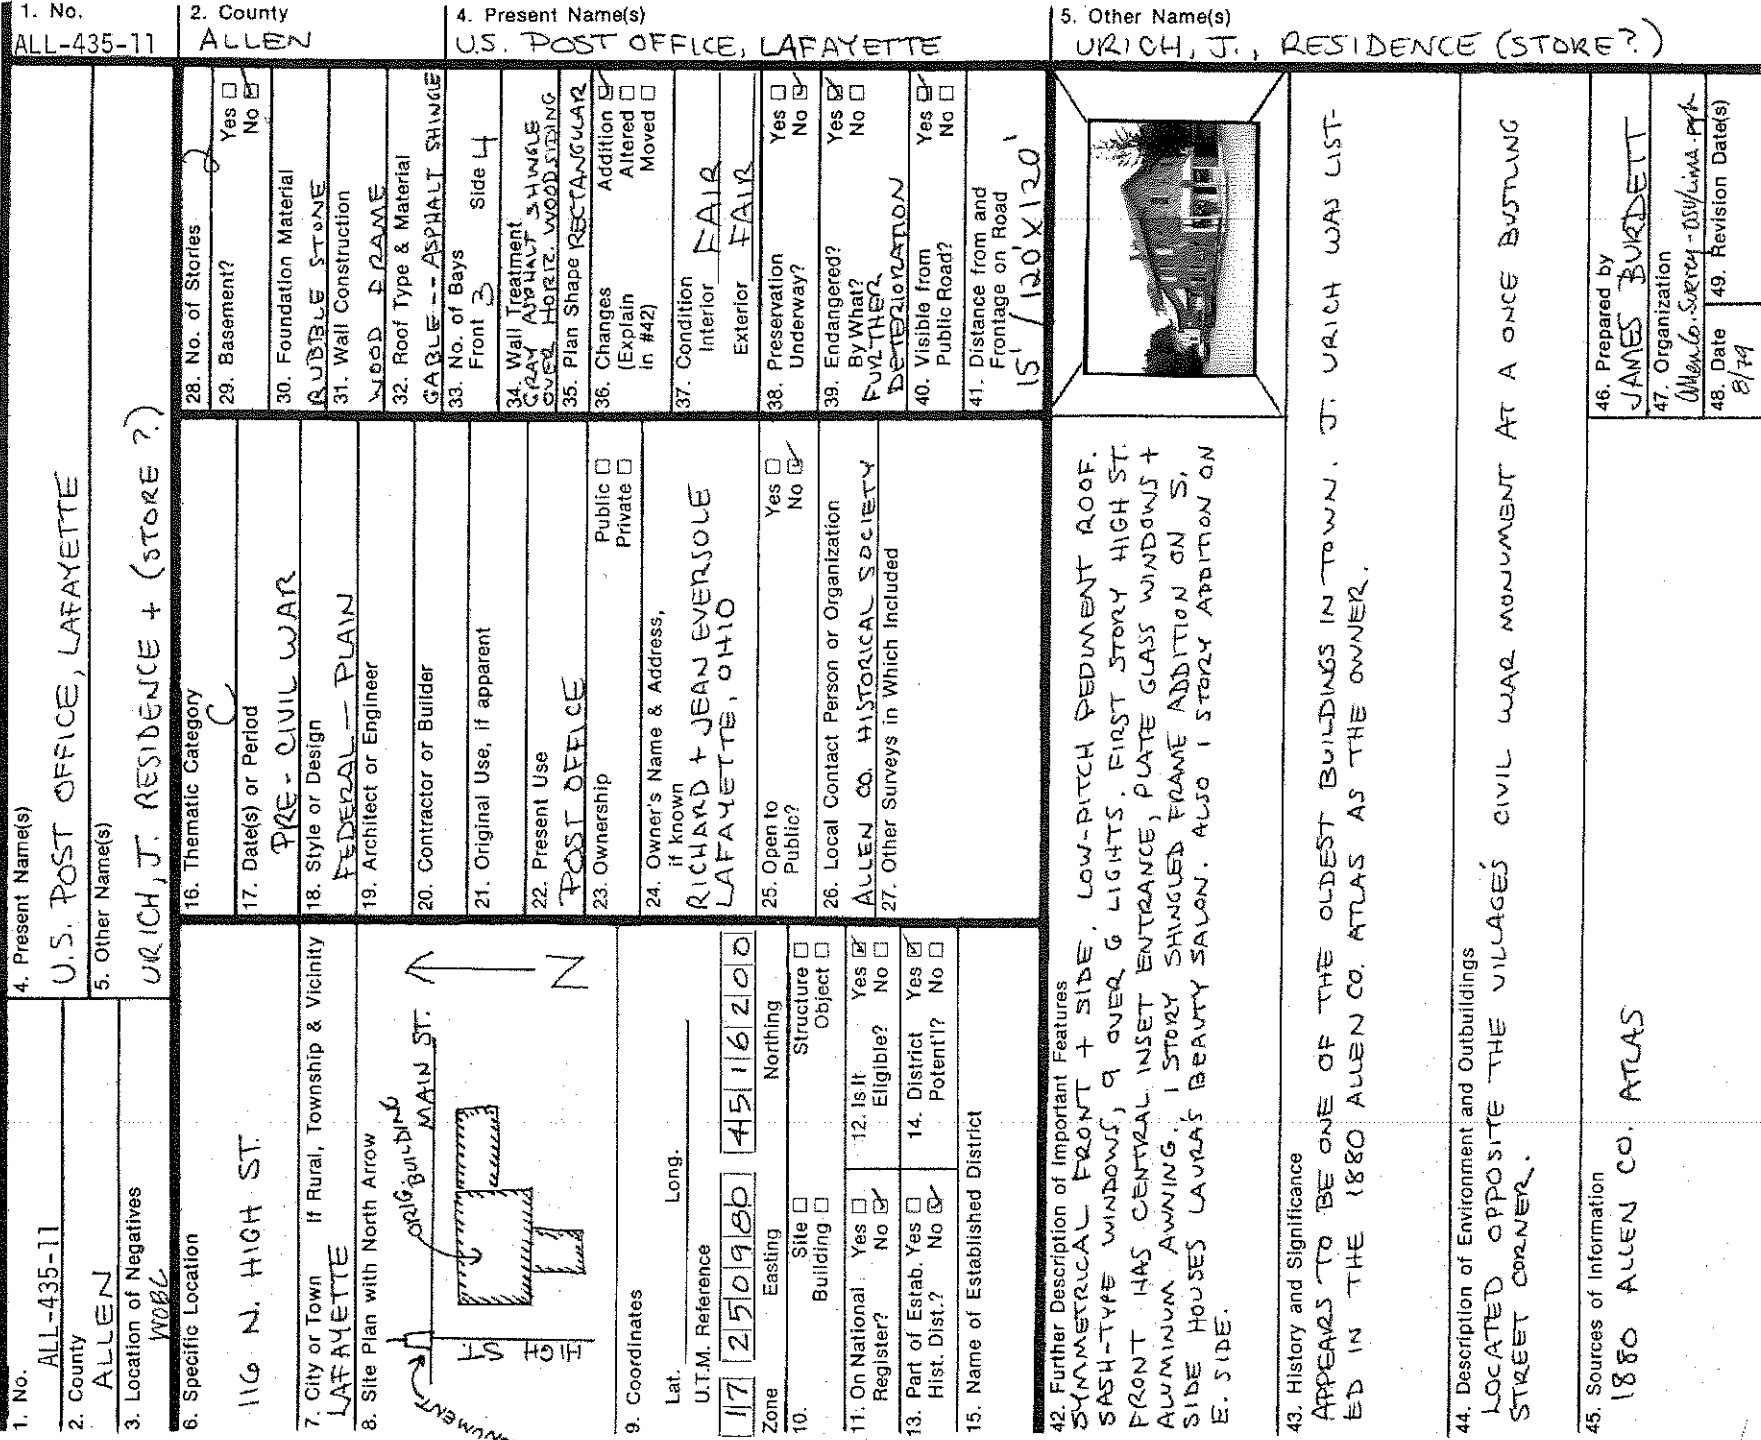 1. No.
ALL-435-11
2. County
ALLEN
4. Present Name(s)
U.S. POST OFFICE, LAFAYETTE
5. Other Name(s)
URICH, J., RESIDENCE (STORE?)
1. No.
ALL-435-11
2. County
ALLEN
3. Location of Negatives
WOBC
4. Present Name(s)
U.S. POST OFFICE, LAFAYETTE
5. Other Name(s)
URICH, J. RESIDENCE + (STORE?)
6. Specific Location
116 N. HIGH ST.
7. City or Town If Rural, Township & Vicinity
LAFAYETTE
8. Site Plan with North Arrow
ORIG. BUILDING
MAIN ST.
N
HIGH
ST
9. Coordinates
Lat. Long.
U.T.M. Reference
17 250980 4516200
Zone Easting Northing
10. Site □ Structure □
Building □ Object □
11. On National Register? Yes □ No ☑
12. Is It Eligible? Yes ☑ No □
13. Part of Estab. Hist. Dist.? Yes □ No ☑
14. District Potent'l? Yes ☑ No □
15. Name of Established District
16. Thematic Category
C
17. Date(s) or Period
PRE-CIVIL WAR
18. Style or Design
FEDERAL - PLAIN
19. Architect or Engineer
20. Contractor or Builder
21. Original Use, if apparent
22. Present Use
POST OFFICE
23. Ownership Public □
Private □
24. Owner's Name & Address,
if known
RICHARD + JEAN EVERSOLE
LAFAYETTE, OHIO
25. Open to Yes □
Public? No ☑
26. Local Contact Person or Organization
ALLEN CO. HISTORICAL SOCIETY
27. Other Surveys in Which Included
28. No. of Stories 2
29. Basement? Yes □
No ☑
30. Foundation Material
RUBBLE STONE
31. Wall Construction
WOOD FRAME
32. Roof Type & Material
GABLE -- ASPHALT SHINGLE
33. No. of Bays
Front 3 Side 4
34. Wall Treatment
GRAY ASPHALT SHINGLE
OVER HORIZ. WOOD SIDING
35. Plan Shape RECTANGULAR
36. Changes Addition ☑
(Explain Altered □
in #42) Moved □
37. Condition
Interior FAIR
Exterior FAIR
38. Preservation Yes □
Underway? No ☑
39. Endangered? Yes ☑
By What? No □
FURTHER
DETERIORATION
40. Visible from Yes ☑
Public Road? No □
41. Distance from and
Frontage on Road
15' / 120' X 120'
42. Further Description of Important Features
SYMMETRICAL FRONT + SIDE. LOW-PITCH PEDIMENT ROOF.
SASH-TYPE WINDOWS, 9 OVER 6 LIGHTS. FIRST STORY HIGH ST.
FRONT HAS CENTRAL INSET ENTRANCE, PLATE GLASS WINDOWS +
ALUMINUM AWNING. 1 STORY SHINGLED FRAME ADDITION ON S.
SIDE HOUSES LAURA'S BEAUTY SALON. ALSO 1 STORY ADDITION ON
E. SIDE.
43. History and Significance
APPEARS TO BE ONE OF THE OLDEST BUILDINGS IN TOWN. J. URICH WAS LIST-
ED IN THE 1880 ALLEN CO. ATLAS AS THE OWNER.
44. Description of Environment and Outbuildings
LOCATED OPPOSITE THE VILLAGE'S CIVIL WAR MONUMENT AT A ONCE BUSTLING
STREET CORNER.
45. Sources of Information
1880 ALLEN CO. ATLAS
46. Prepared by
JAMES BURDETT
47. Organization
Allen Co. Survey - OSU/Lima
48. Date
8/79
49. Revision Date(s)